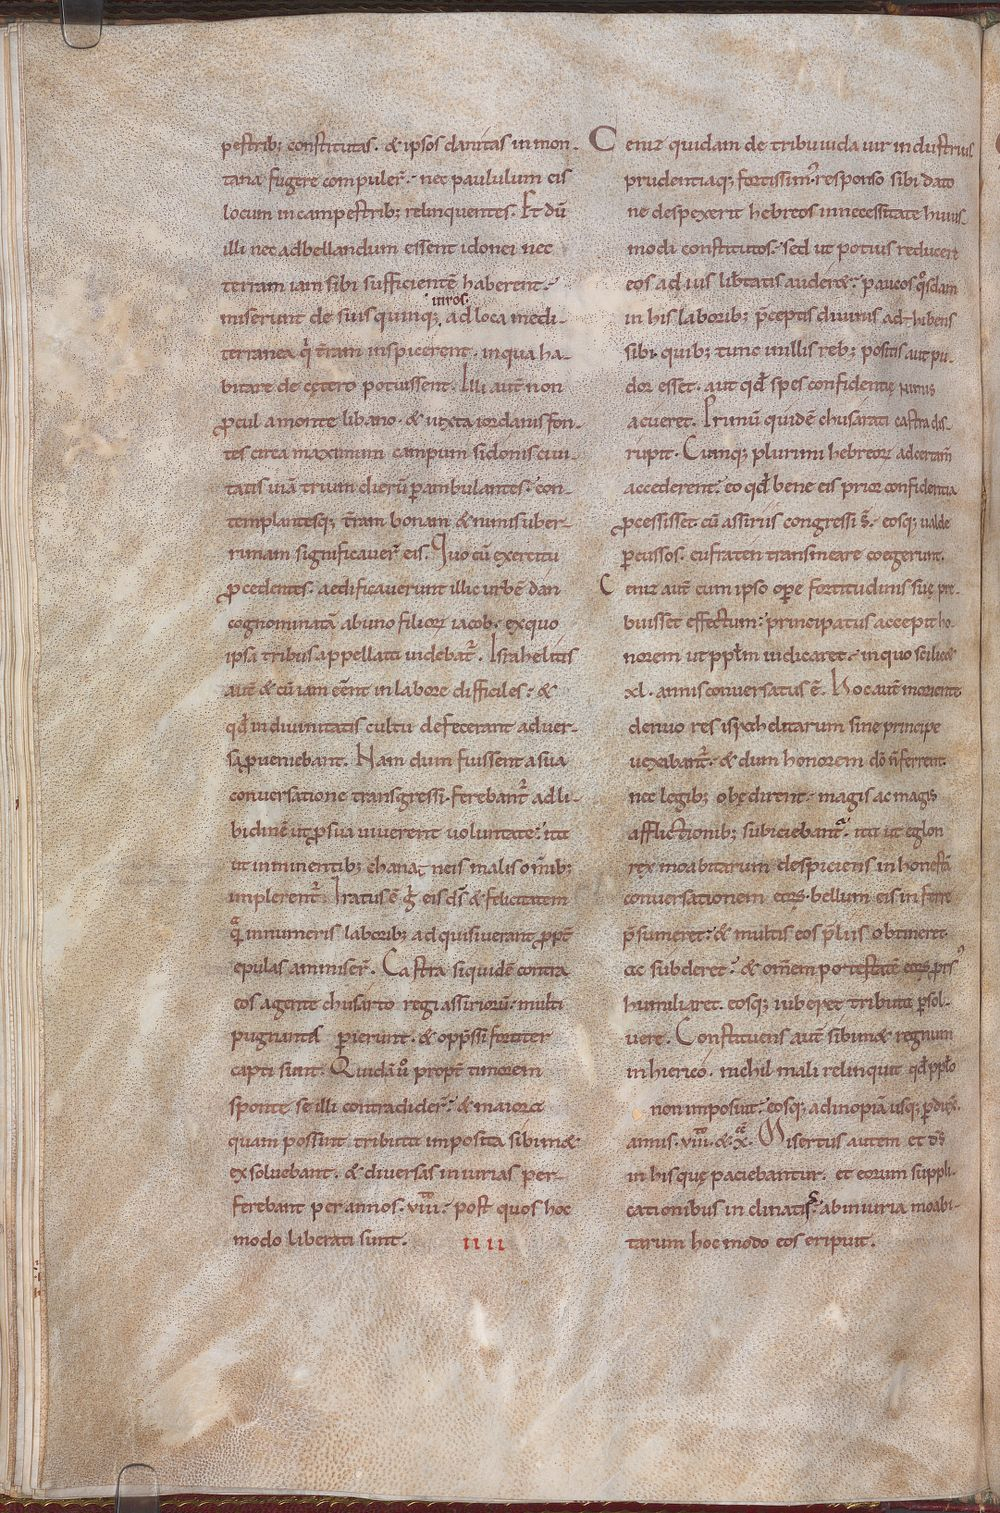 pestrib; constitutas. & ipsos danitas in mon-
tana fugere compuler̄. nec paululum eis
locum in campestrib; relinquentes. Et dū
illi nec ad bellandum essent idonei nec
terram iam sibi sufficientē haberent.
uiros
miserunt de suis quinq; ad loca medi-
terranea q̇ t̄ram inspicerent. in qua ha-
bitare de cętero potuissent. Illi aut̄ non
ꝓcul a monte libano. & iuxta iordanis fon-
tes circa maximum campum sidonis ciui-
tatis uiā trium dierū ꝑambulantes. con-
templantesq; t̄ram bonam & nimis uber-
rimam significauer̄ eis. Quo cū exercitu
ꝓcedentes. aedificauerunt illic urbē dan
cognominatā ab uno filioꝝ iacob. ex quo
ipsa tribus appellata uidebat̄. Israhelitis
aut̄ & cū iam eēnt in labore difficiles. &
qđ in diuinitatis cultu defecerant aduer-
sa ꝓueniebant. Nam dum fuissent a sua
conuersatione transgressi. ferebant̄ ad li-
bidinē ut ꝓ sua uiuerent uoluntate. ita
ut imminentib; chananeis malis om̄ib;
implerent̄. Iratus ē g̊ eis d̄s & felicitatem
quā innumeris laborib; adquisiuerant ꝓpt̄
epulas amiser̄. Castra siquidē contra
eos agente chusarto regi assirioꝝ. multi
pugnantes perierunt. & opp̄ssi fortiter
capti sunt. Quidā u̇ propt̄ timorem
sponte se illi contradider̄. & maiora
quam possint tributa imposita sibimet
exsoluebant. & diuersas iniurias per-
ferebant per annos. viii. post quos hoc
modo liberati sunt. IIII
Cenez quidam de tribu iuda uir industrius
prudentiaq; fortissim᷒. responso sibi dato
ne despexerit hebreos in necessitate huius-
modi constitutos. sed ut potius reducere
eos ad ius lib̄tatis auder&. paucos q̊sdam
in his laborib; p̄ceptis diuinis adhibens
sibi. quib; tunc in illis reb; positis aut pu-
dor esset. aut qđ spes confidentię nimis
acueret. Primū quidē chusarati castra dis-
rupit. Cumq; plurimi hebreoꝝ ad certam̄
accederent. eo qđ bene eis prior confidentia
ꝓcessisset. cū assiriis congressi s̄. eosq; ualde
ꝑcussos. eufraten transmeare coegerunt.
Cenez aut̄ cum ipso oꝑe fortitudinis suę pre-
buisset effectum. principatus accepit ho-
norem ut pp̄lm iudicaret. in quo scilic&
xl. annis conuersatus ē. Hoc aut̄ moriente
denuo res israhelitarum sine principe
uexabant̄. & dum honorem dō n̄ ferrent.
nec legib; obędirent. magis ac magis
afflictionib; subiciebant̄. ita ut eglon
rex moabitarum despiciens inhonestā
conuersationem eoꝝ. bellum eis inferre
p̄sumeret. & multis eos p̄liis obtineret.
ac subderet. & om̄em potestatē eoꝝ prs᷒
humiliaret. eosq; iuberet tributa ꝑsol-
uere. Constituens aut̄ sibimet regnum
in hierico. nichil mali relinquit qđ pp̄lo
non imposuit. eosq; ad inopiā usq; ꝑdux̄.
annis. viii. & x. Misertus autem et d̄s
in his quę paciebantur. et eorum suppli-
cationibus inclinatus. ab iniuria moabi-
tarum hoc modo eos eripuit.